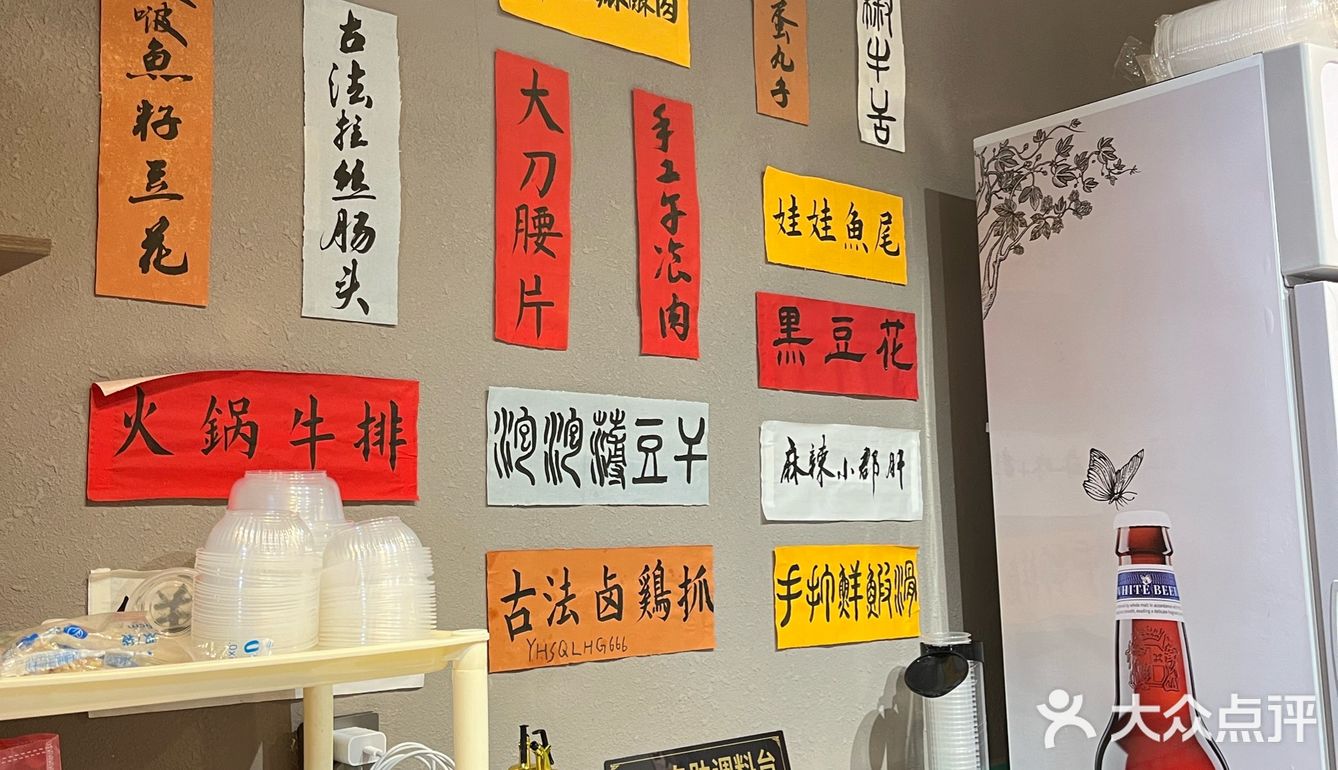 啵魚籽豆花
古法拉丝肠头
大刀腰片
手工午飡肉
蛋丸子
椒牛舌
娃娃魚尾
黑豆花
火鍋牛排
泡泡薄豆干
麻辣小郡肝
古法卤鷄抓
YHSQLHG666
手帅鮮鰕滑
自助调料台
WHITE BEER
大众点评